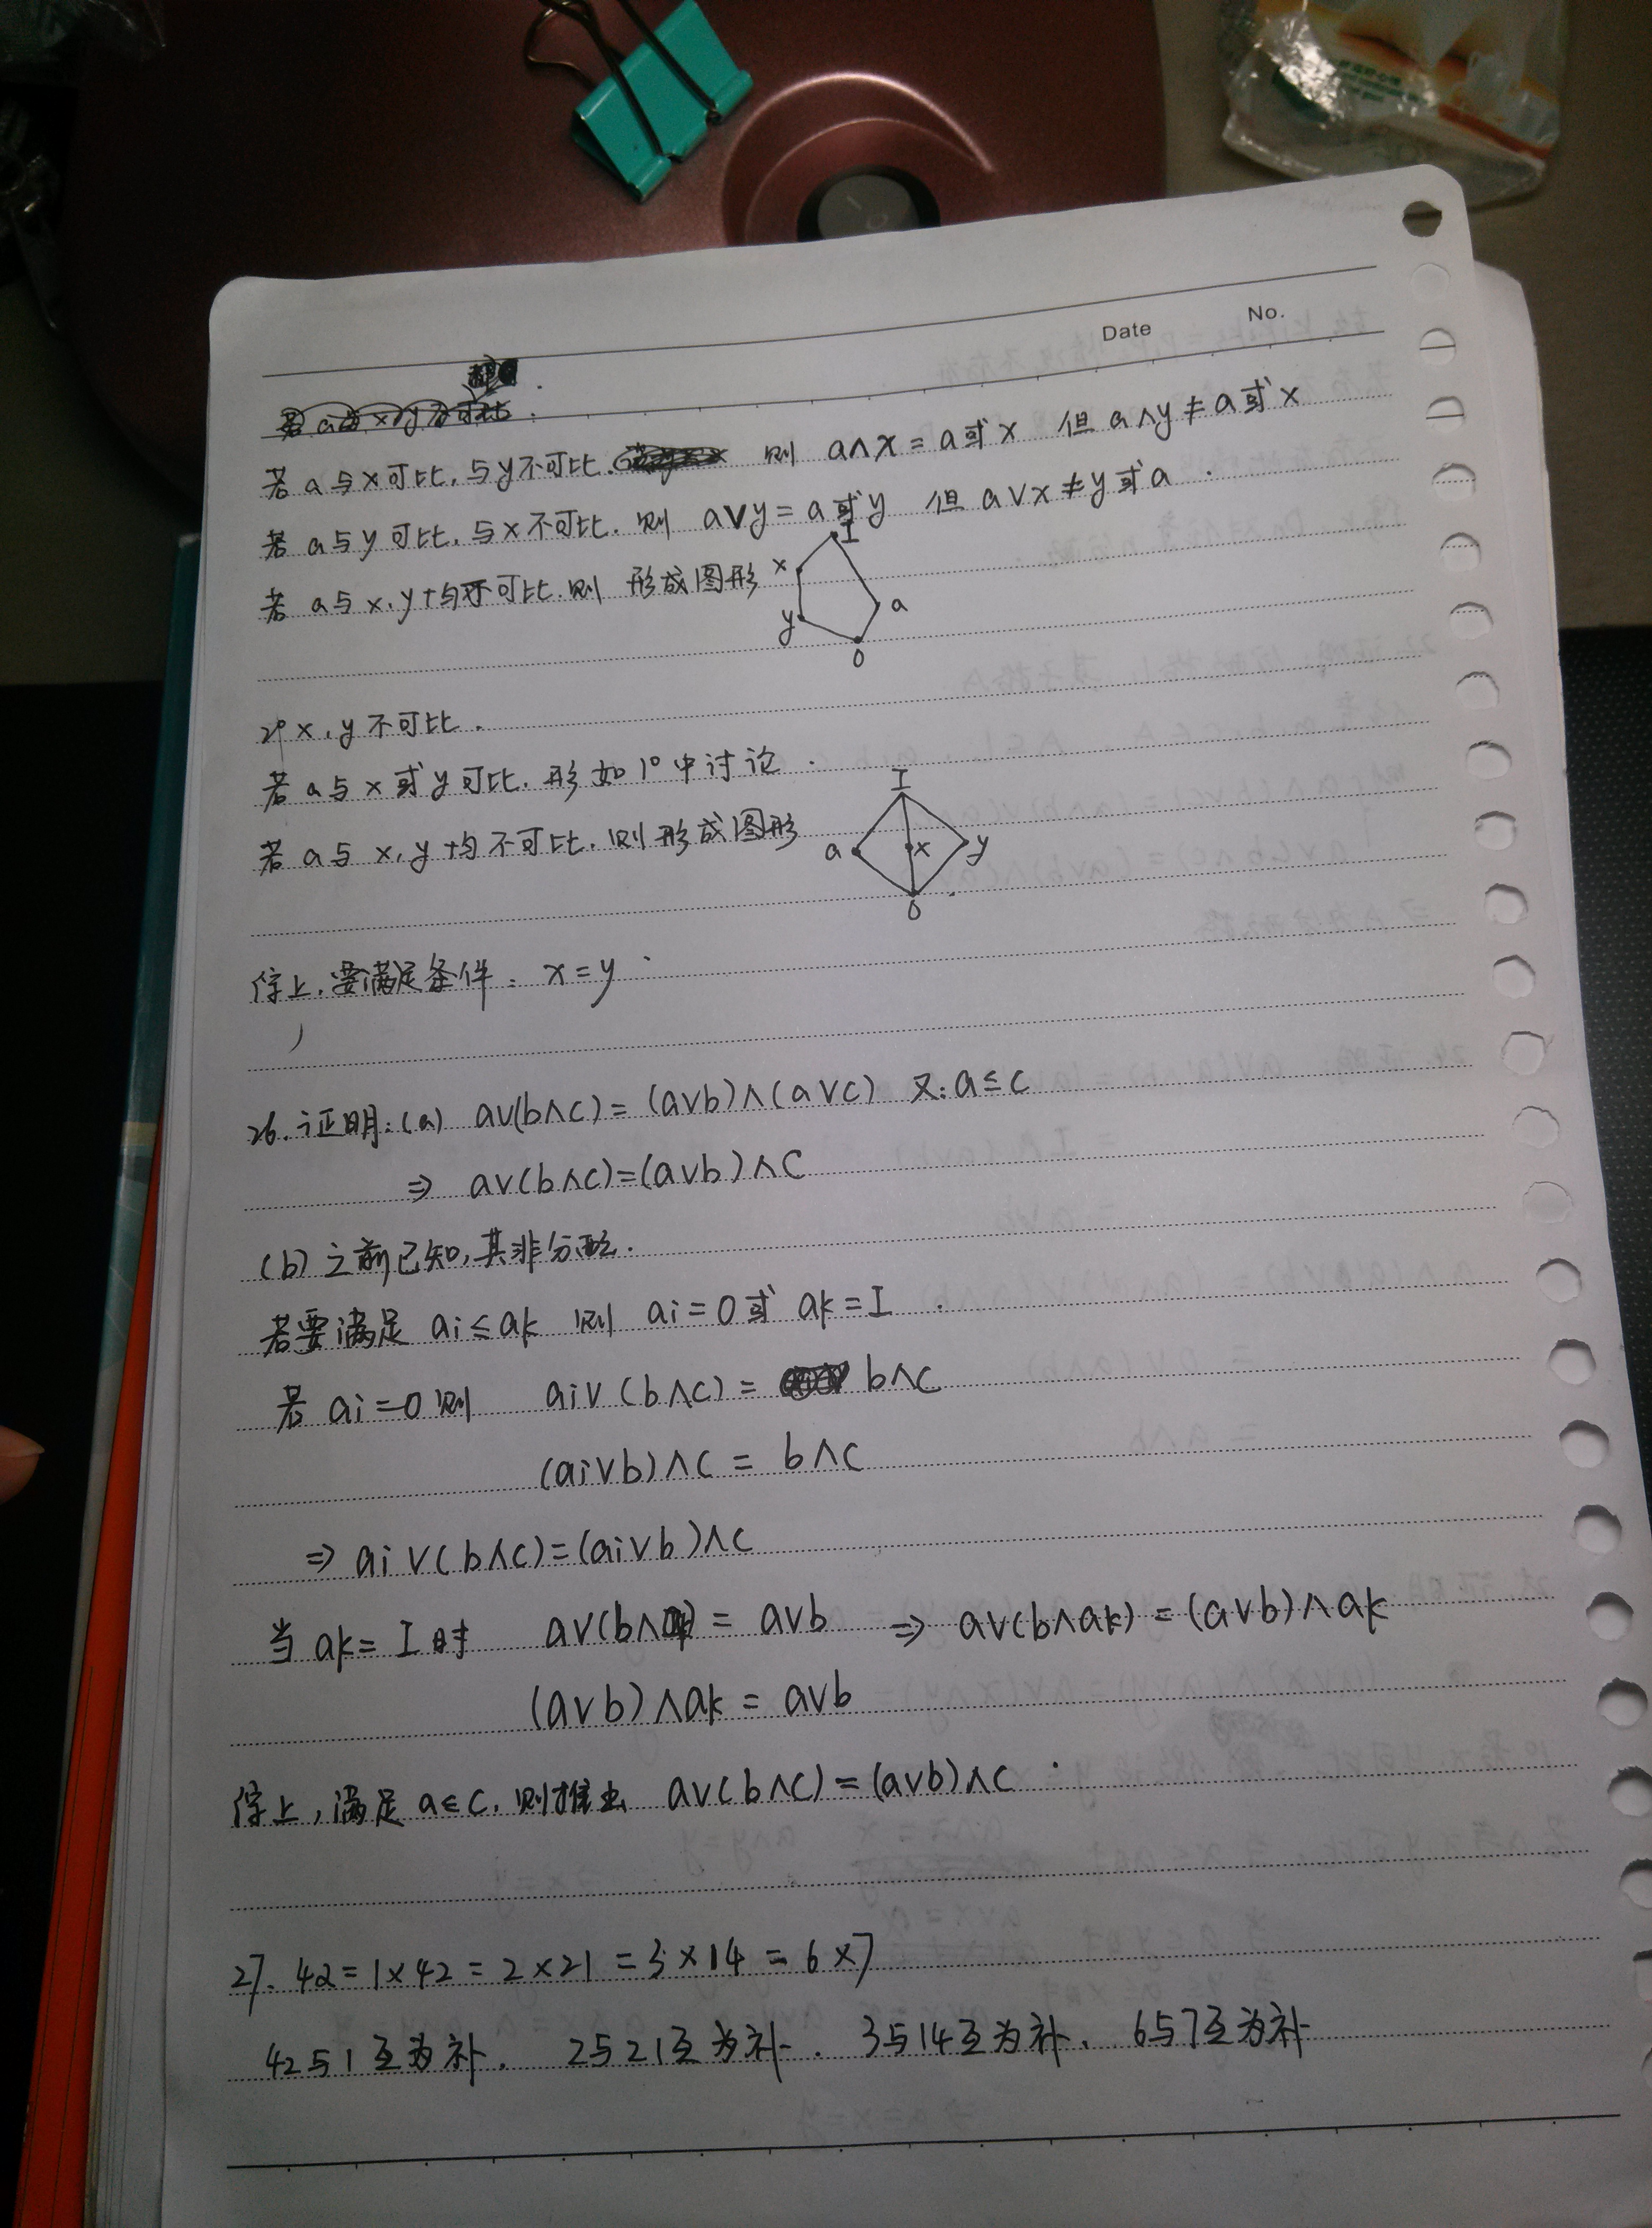 Date No.
若a与x可比,与y不可比. 则 a∧x=a或x 但 a∧y≠a或x
若a与y可比,与x不可比.则 a∨y=a或y 但 a∨x≠y或a.
若a与x,y均不可比.则 形成图形
I
x
a
y
0
2° x,y不可比.
若a与x或y可比.形如1°中讨论.
若a与x,y均不可比.则形成图形
I
a x y
0
综上,要满足条件: x=y
26.证明:(a) a∨(b∧c)=(a∨b)∧(a∨c) 又:a≤c
⇒ a∨(b∧c)=(a∨b)∧c
(b)之前已知,其非分配.
若要满足 ai≤ak 则 ai=0或 ak=I.
若 ai=0则 ai∨(b∧c)= b∧c
(ai∨b)∧c = b∧c
⇒ ai∨(b∧c)=(ai∨b)∧c
当 ak=I时 a∨(b∧ak)= a∨b ⇒ a∨(b∧ak)=(a∨b)∧ak
(a∨b)∧ak = a∨b
综上,满足 a≤c,则推出 a∨(b∧c)=(a∨b)∧c.
27. 42=1×42=2×21=3×14=6×7
42与1互为补. 2与21互为补. 3与14互为补. 6与7互为补